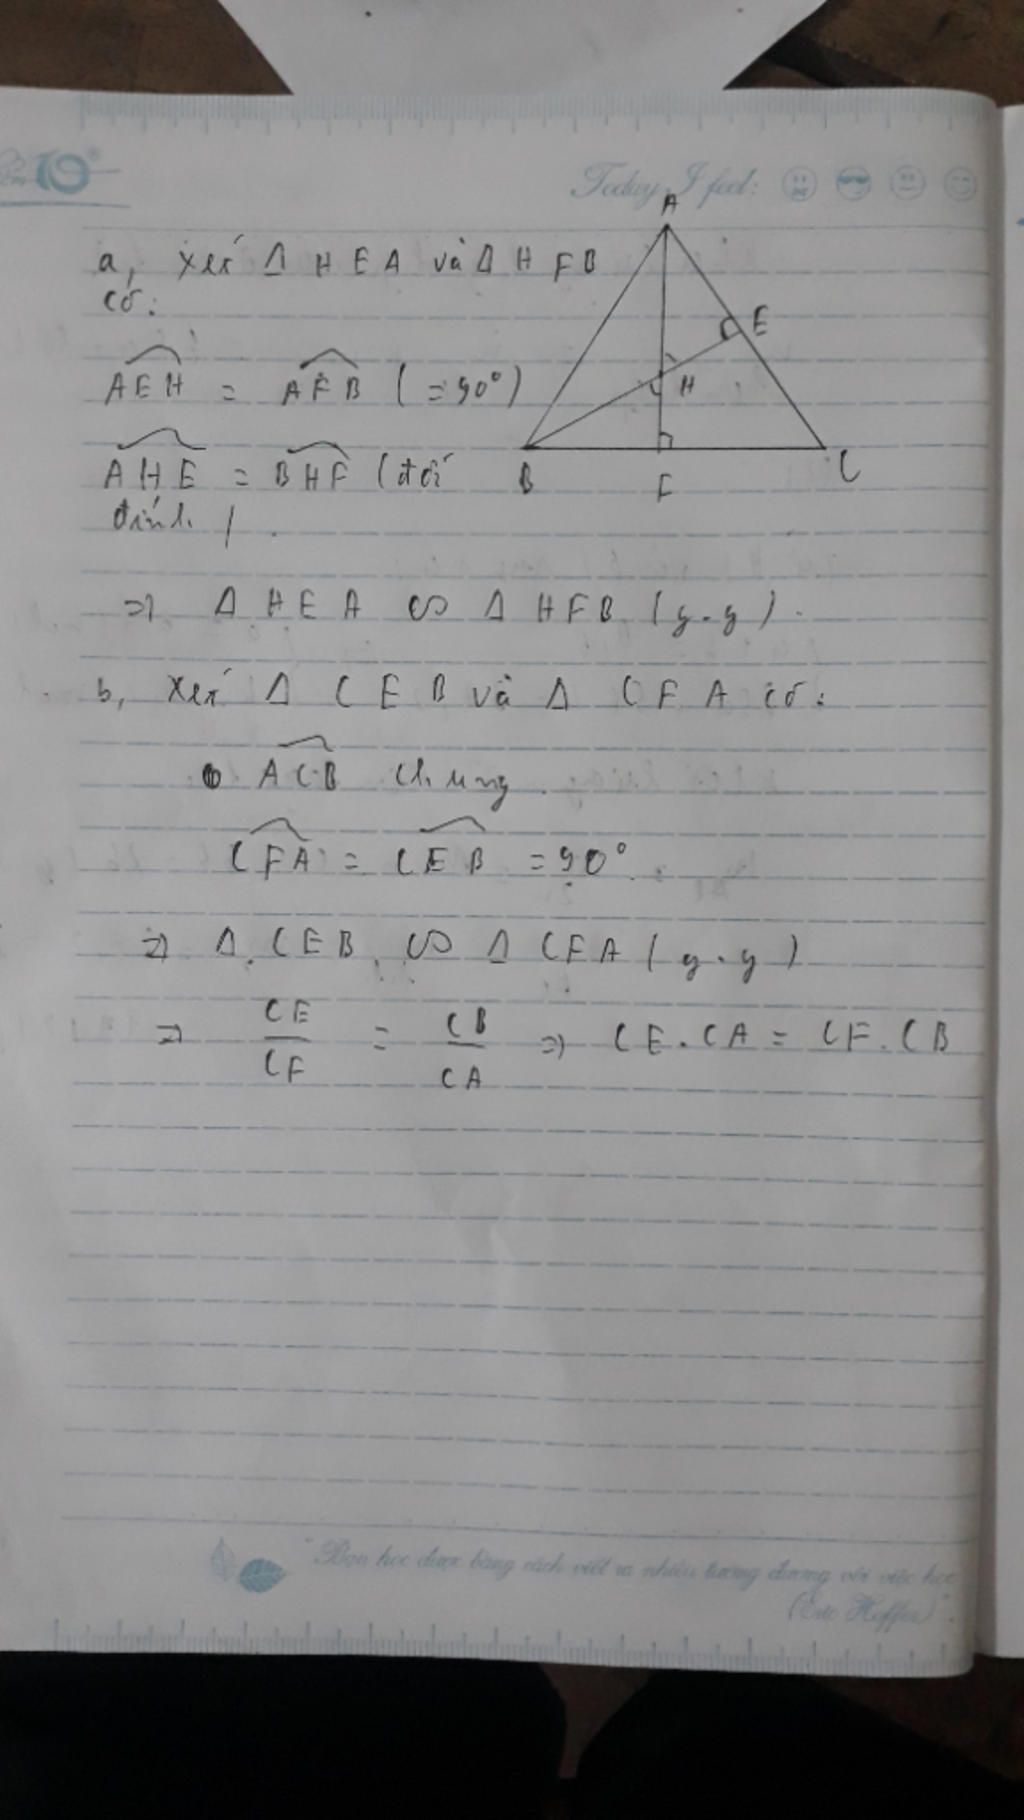 10
Today, I feel:
A
a, xét Δ HEA và Δ HFB
có:
E
AEH = AFB (=90°)
H
AHE = BHF (đối
B
F
C
đỉnh)
=> Δ HEA ∽ Δ HFB (g.g).
b, Xét Δ CEB và Δ CFA có:
ACB chung.
CFA = CEB = 90°.
=> Δ CEB ∽ Δ CFA (g.g)
=> CE/CF = CB/CA => CE.CA = CF.CB
"Bạn học được bằng cách viết ra nhiều tương đương với việc học
(Eric Hoffer)".